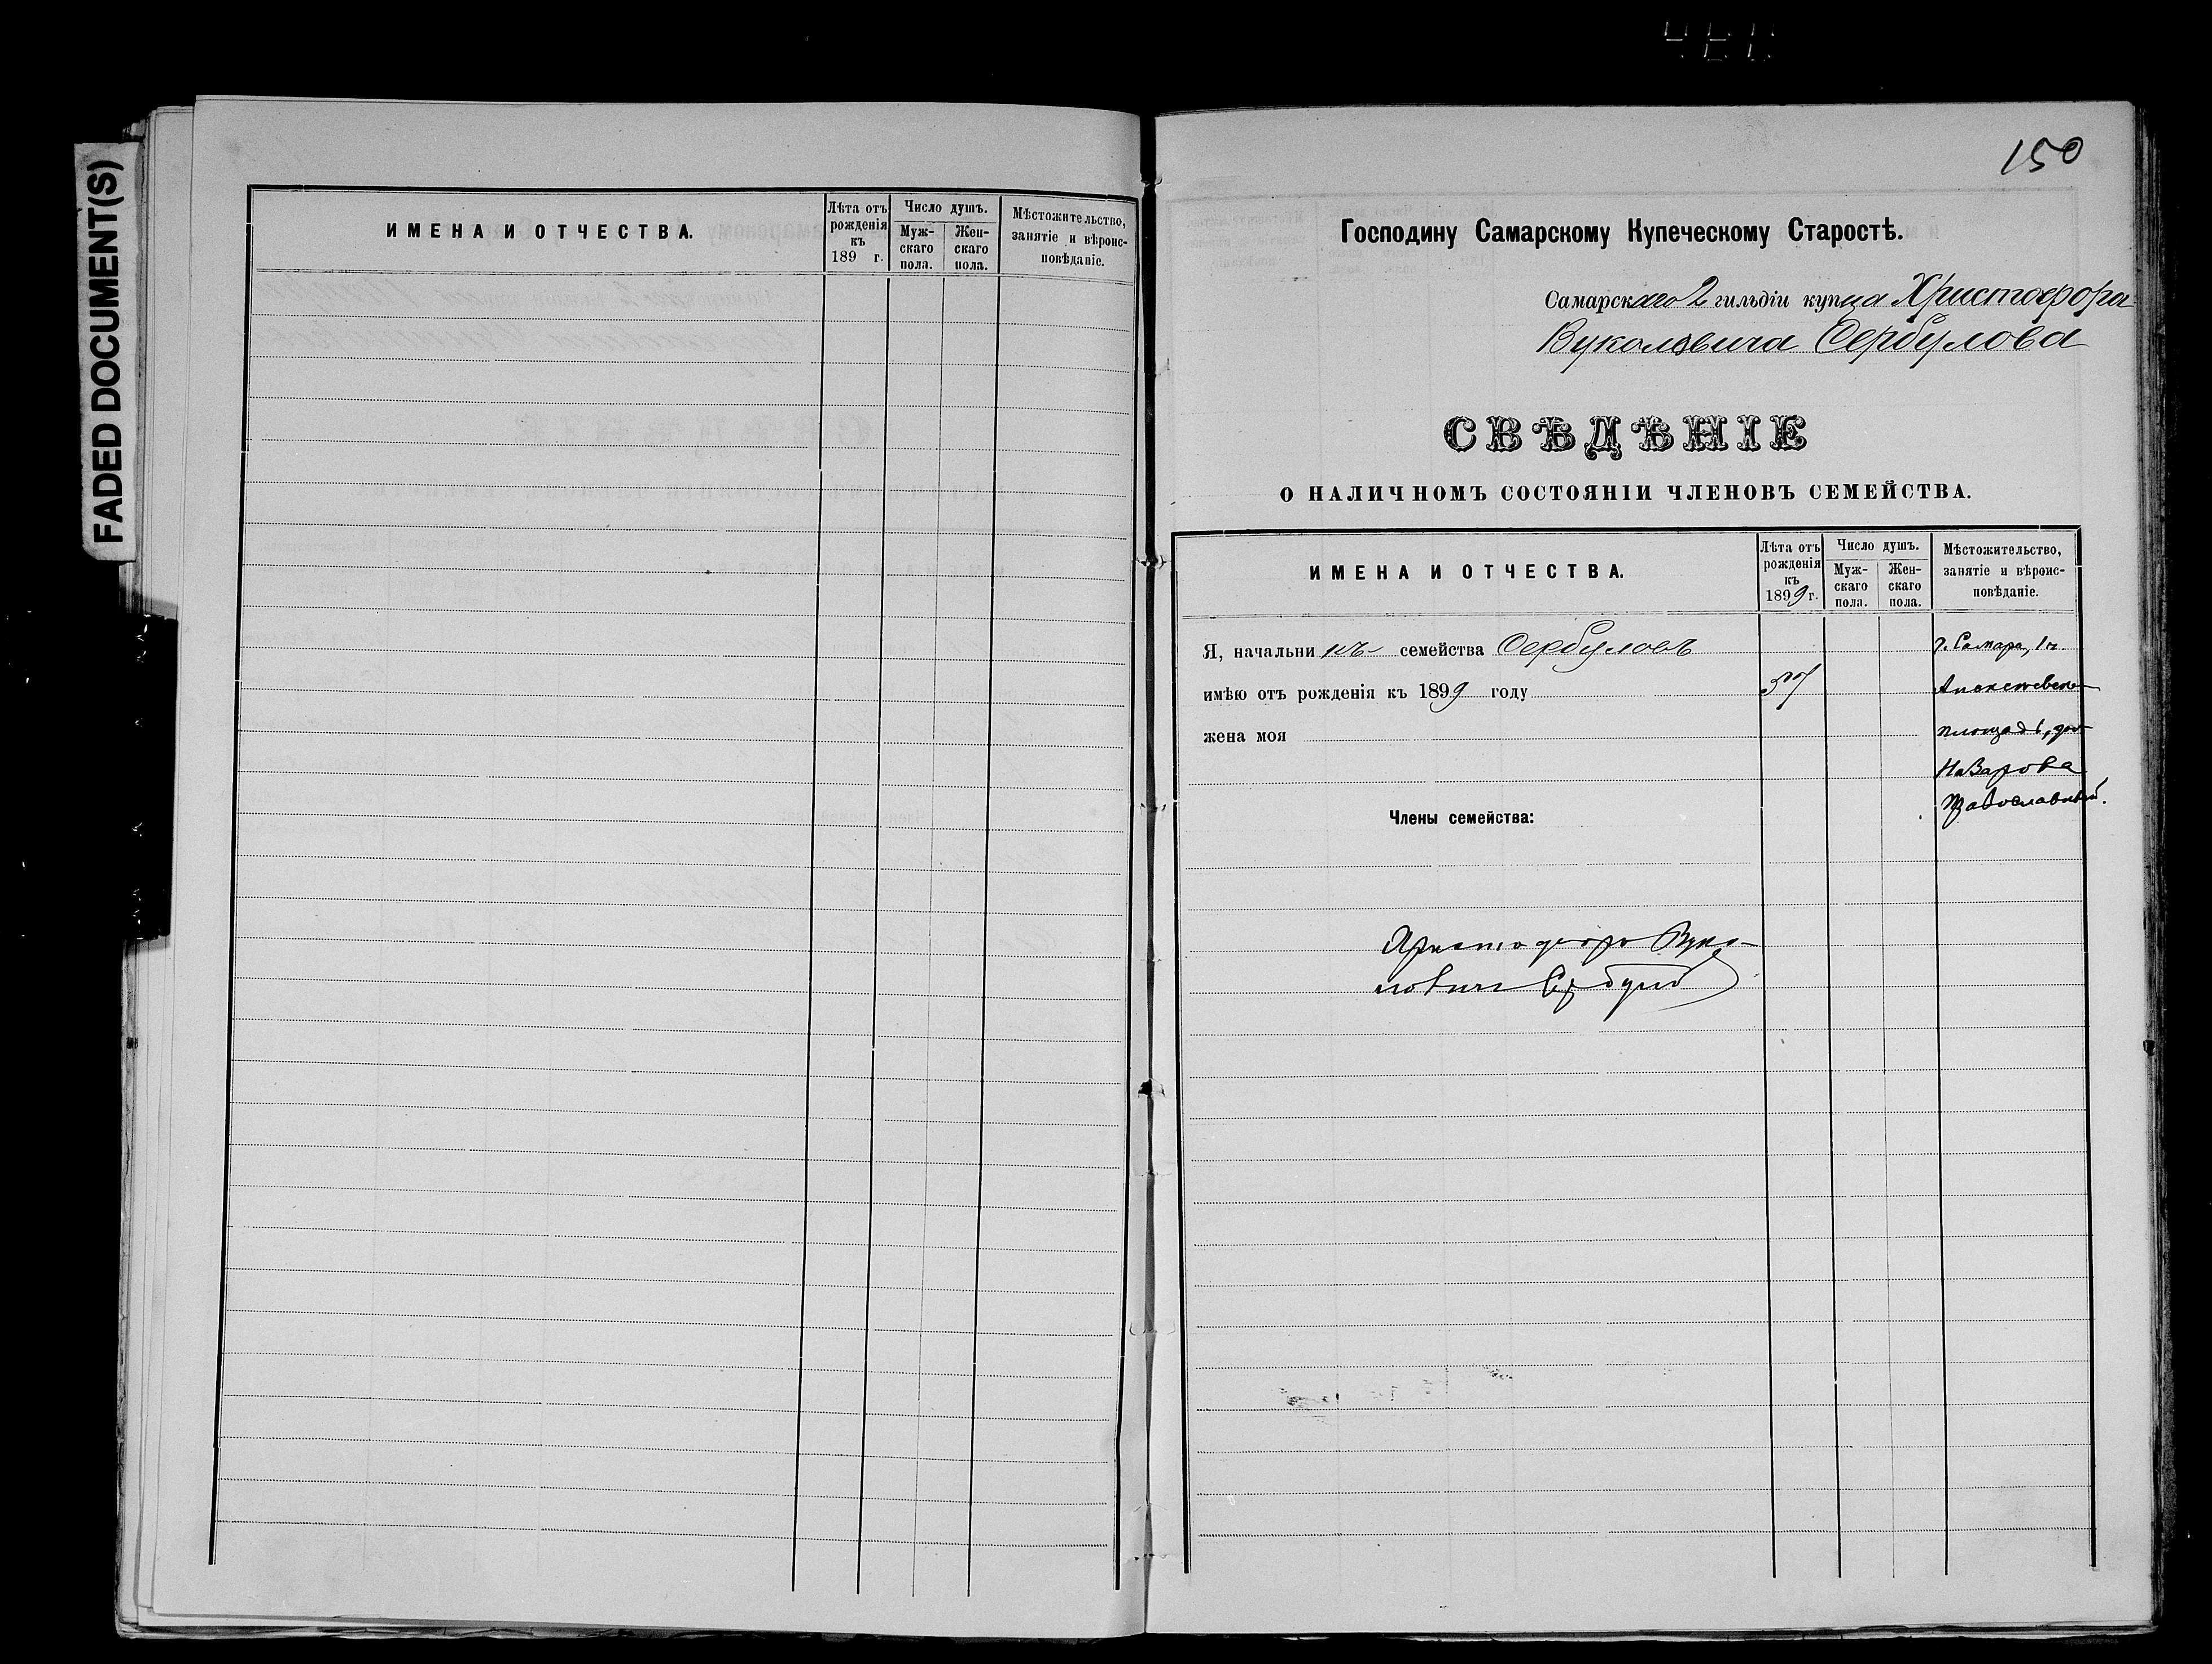 FADED DOCUMENT(S)
ИМЕНА И ОТЧЕСТВА.
Лѣта отъ рожденія къ 189 г.
Число душъ.
Мужскаго пола.
Женскаго пола.
Мѣстожительство, занятіе и вѣроисповѣданіе.
150
Господину Самарскому Купеческому Старостѣ.
Самарскаго 2 гильдіи купца Христофора
Вуколовича Сербулова
СВѢДѢНІЕ
О НАЛИЧНОМЪ СОСТОЯНІИ ЧЛЕНОВЪ СЕМЕЙСТВА.
ИМЕНА И ОТЧЕСТВА.
Лѣта отъ
рожденія
къ
1899 г.
Число душъ.
Муж-
скаго
пола.
Жен-
скаго
пола.
Мѣстожительство,
занятіе и вѣроис-
повѣданіе.
Я, начальникъ семейства Сербуловъ
г. Самара, 1 ч.
имѣю отъ рожденія къ 1899 году
Алексѣевск.
жена моя
площадь,
Назарова
Православный.
Члены семейства:
Христофоръ Вуко-
ловичъ Сербулов